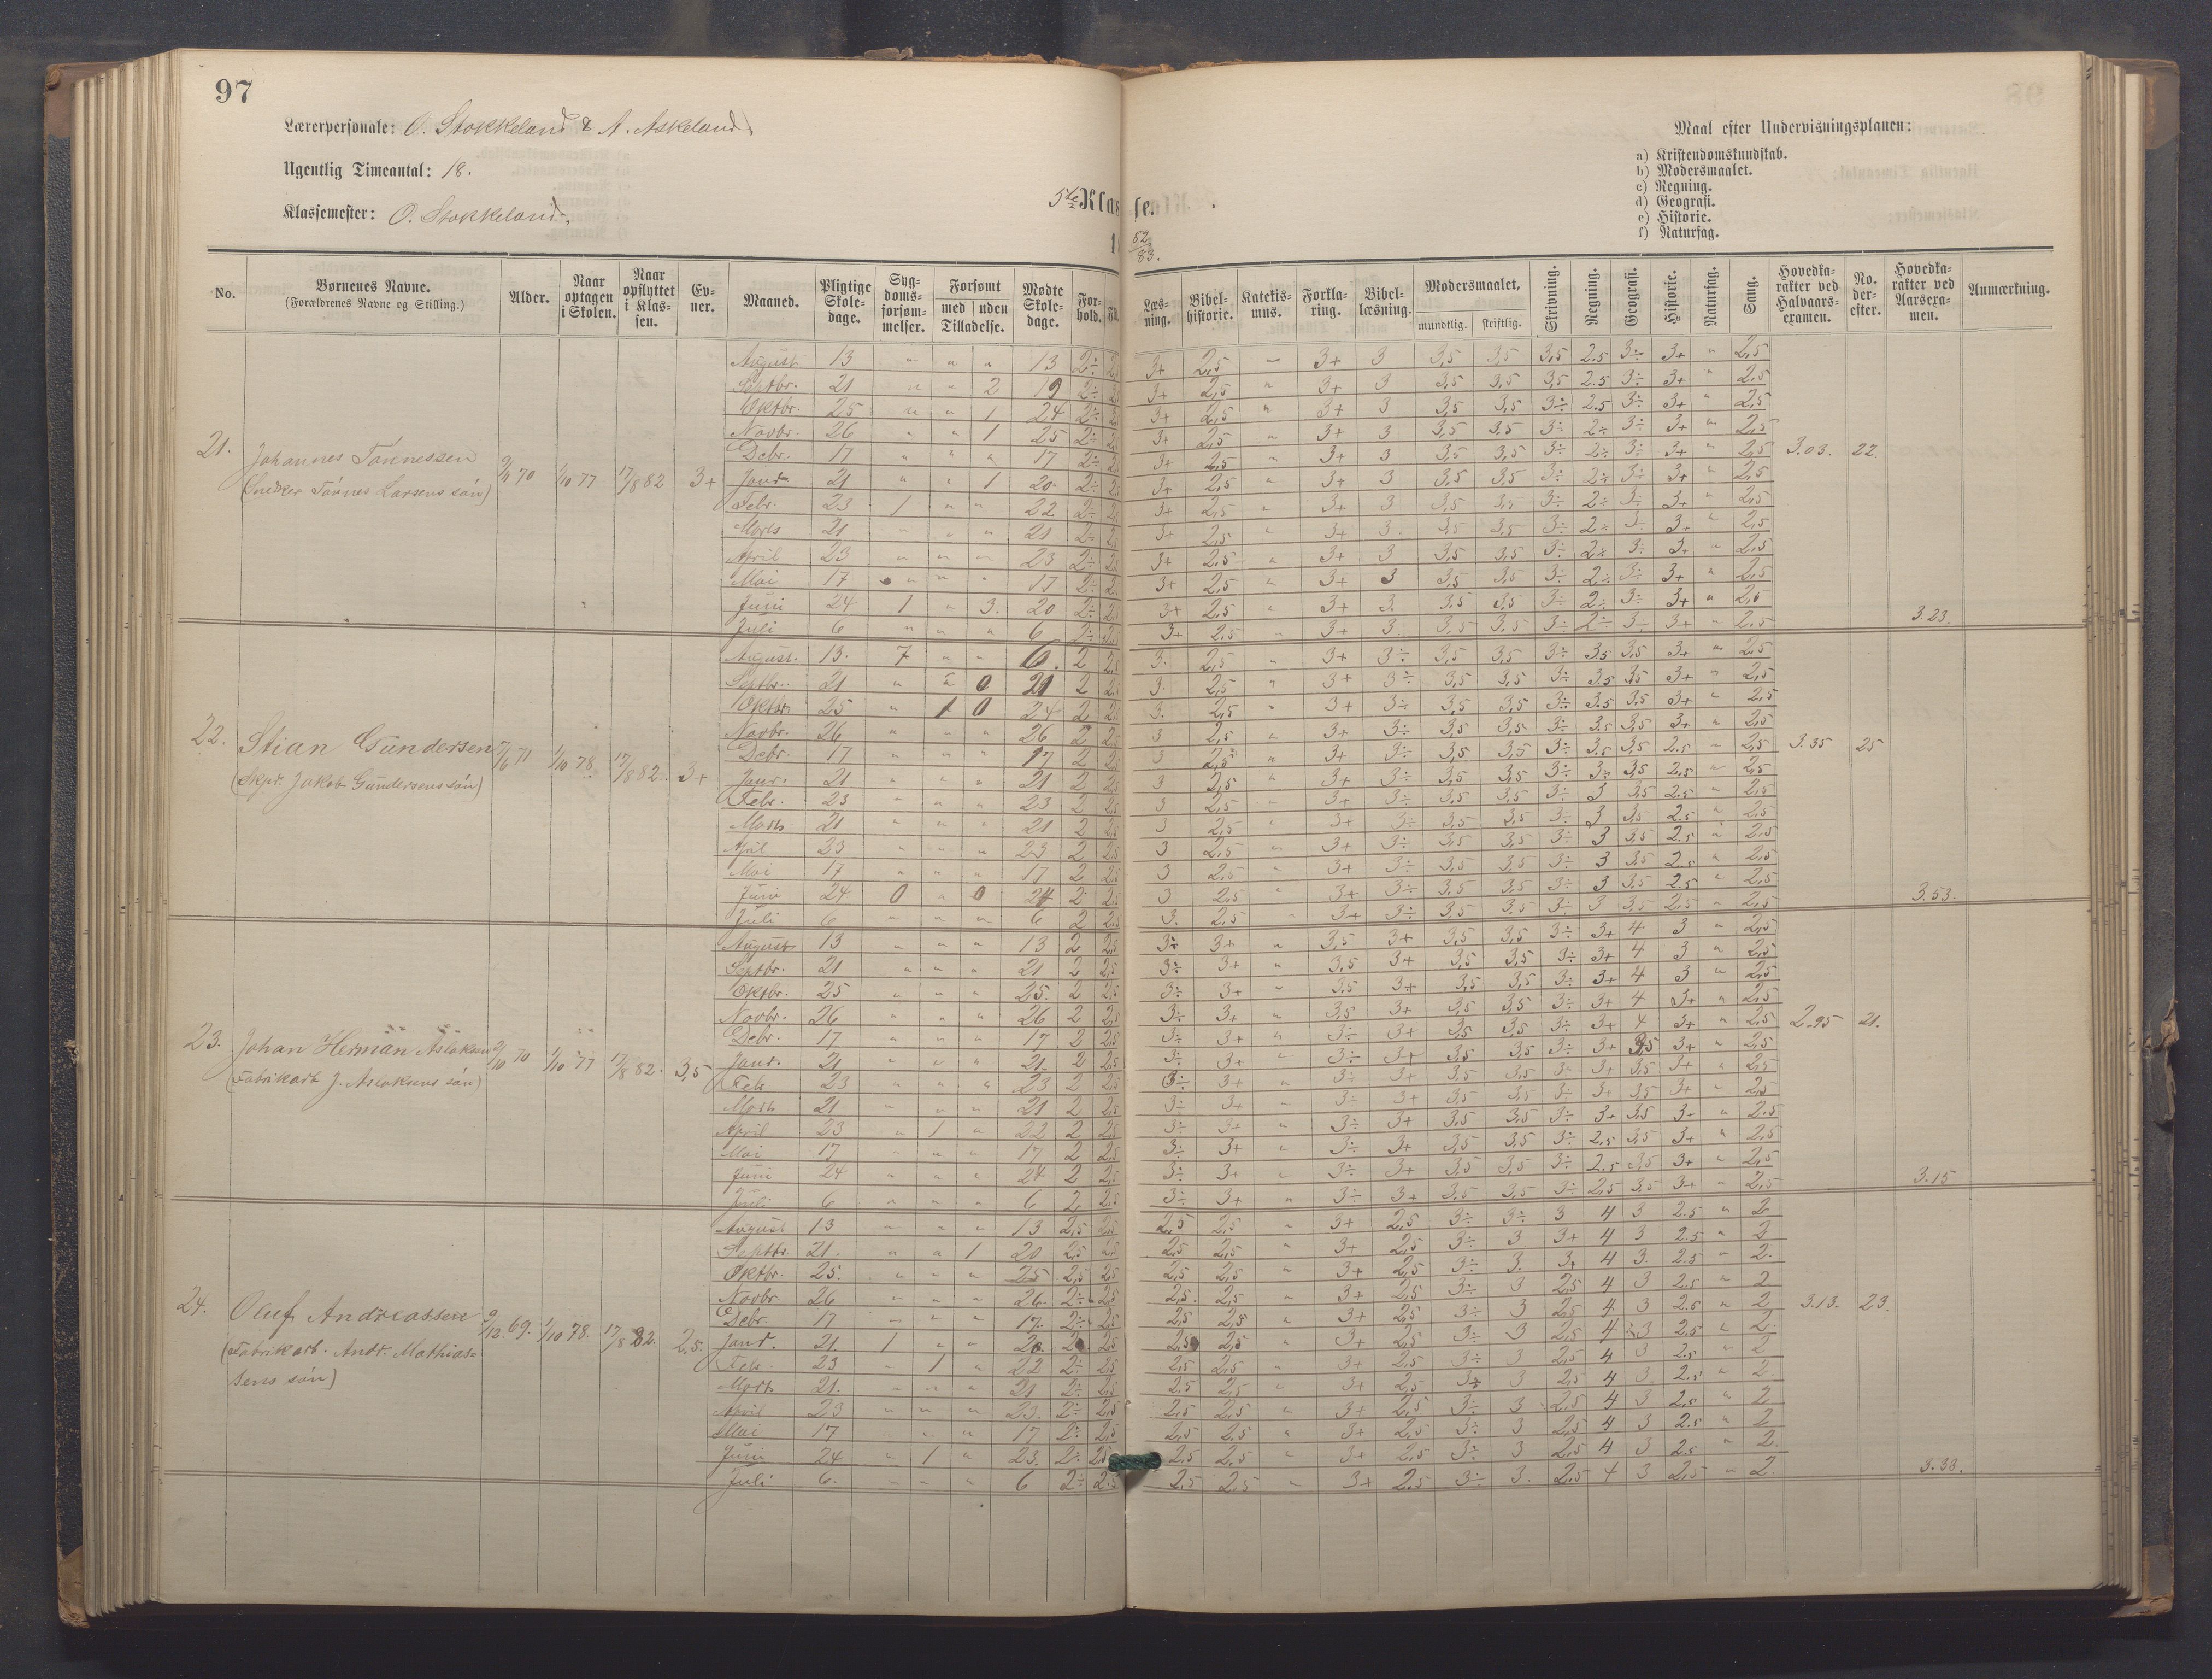 97
Lærerpersonale: O. Stokkeland & A. Askeland.
Ugentlig Timeantal: 18.
Klassemester: O. Stokkeland.
5te Klasse.
82/83.
Maal efter Undervisningsplanen:
a) Kristendomskundskab.
b) Modersmaalet.
c) Regning.
d) Geografi.
e) Historie.
f) Naturfag.
No. Børnenes Navne. (Forældrenes Navne og Stilling.) Alder. Naar optagen i Skolen. Naar opflyttet i Klassen. Evner. Maaned. Pligtige Skoledage. Sygdomsforsømmelser. Forsømt med uden Tilladelse. Mødte Skoledage. Forhold. Læsning. Bibelhistorie. Katekismus. Forklaring. Bibellæsning. Modersmaalet, mundtlig. skriftlig. Skrivning. Regning. Geografi. Historie. Naturfag. Sang. Hovedkarakter ved Halvaarsexamen. No. derefter. Hovedkarakter ved Aarsexamen. Anmærkning.
21. Johannes Tönnessen
(Snedker Tönnes Larsens sön) 70 1/10 77 17/8 82 3+
August 13 " " " 13 2÷ 3+ 2,5 " 3+ 3 3,5 3,5 3,5 2.5 3÷ 3+ " 2,5
Septbr. 21 " " 2 19 2÷ 3+ 2,5 " 3+ 3 3,5 3,5 3,5 2.5 3÷ 3+ " 2,5
Oktbr. 25 " " 1 24 2÷ 3+ 2,5 " 3+ 3 3,5 3,5 3÷ 2.5 3÷ 3+ " 2,5
Novbr. 26 " " 1 25 2÷ 3+ 2,5 " 3+ 3 3,5 3,5 3÷ 2÷ 3÷ 3+ " 2,5
Debr. 17 " " " 17 2÷ 3+ 2,5 " 3+ 3 3,5 3,5 3÷ 2÷ 3÷ 3+ " 2,5 3.03. 22.
Janr. 21 " " 1 20. 2÷ 3+ 2,5 " 3+ 3 3,5 3,5 3÷ 2÷ 3÷ 3+ " 2,5
Febr. 23 1 " " 22 2÷ 3+ 2,5 " 3+ 3 3,5 3,5 3÷ 2÷ 3÷ 3+ " 2,5
Marts 21 " " " 21 2÷ 3+ 2,5 " 3+ 3. 3,5 3,5 3÷ 2÷ 3÷ 3+ " 2,5
April 23 " " " 23 2÷ 3+ 2,5 " 3+ 3 3,5 3,5 3÷ 2÷ 3÷ 3+ " 2,5
Mai 17 " " " 17 2÷ 3+ 2,5 " 3+ 3 3,5 3,5 3÷ 2÷ 3÷ 3+ " 2,5
Juni 24 1 " 3. 20 2÷ 3+ 2,5 " 3+ 3. 3,5 3,5 3÷ 2÷ 3÷ 3+ " 2,5
Juli 6 " " " 6 2÷ 3+ 2,5 " 3+ 3. 3,5 3,5 3÷ 2÷ 3÷ 3+ " 2,5 3.23.
22. Stian Gundersen
(Skpr. Jakob Gundersens sön) 7/6 71 1/10 78. 17/8 82. 3+
August. 13. 7 " " 6. 2 2,5 3. 2,5 " 3+ 3÷ 3,5 3,5 3÷ 3.5 3,5 3+ " 2,5
Septbr. 21 " " 0 21 2 2,5 3. 2,5 " 3+ 3÷ 3,5 3,5 3÷ 3.5 3,5 3+ " 2,5
Oktbr. 25 " 1 0 24 2 2,5 3. 2,5 " 3+ 3÷ 3,5 3,5 3÷ 3.5 3,5 3+ " 2,5
Novbr. 26 " " " 26 2 2,5 3 2,5 " 3+ 3÷ 3,5 3,5 3÷ 3,5 3,5 3+ " 2,5
Debr. 17 " " " 17 2 2,5 3 2,5 " 3+ 3÷ 3,5 3,5 3÷ 3,5 3,5 2.5 " 2,5 3.35 25
Janr. 21 " " " 21 2 2,5 3 2,5 " 3+ 3÷ 3,5 3,5 3÷ 3÷ 3,5 2.5 " 2,5
Febr. 23 " " " 23 2 2,5 3 2,5 " 3+ 3÷ 3,5 3,5 3÷ 3 3,5 2.5 " 2,5
Marts 21 " " " 21 2 2,5 3 2,5 " 3+ 3÷ 3,5 3,5 3÷ 3 3,5 2.5 " 2,5
April 23 " " " 23 2 2,5 3 2,5 " 3+ 3÷ 3,5 3,5 3÷ 3 3,5 2.5 " 2,5
Mai 17 " " " 17 2 2,5 3 2,5 " 3+ 3÷ 3,5 3,5 3÷ 3 3,5 2.5 " 2,5
Juni 24 0 " 0 24 2 2,5 3 2,5 " 3+ 3÷ 3,5 3,5 3÷ 3 3,5 2.5 " 2,5
Juli 6 " " " 6 2 2,5 3. 2,5 " 3+ 3÷ 3,5 3,5 3÷ 3 3,5 2,5 " 2,5 3.53.
23. Johan Herman Aslaksen
(Fabrikarb J. Aslaksens sön) 2/10 70 1/10 77 17/8 82. 3,5
August 13 " " " 13 2 2,5 3÷ 3+ " 3,5 3+ 3,5 3,5 3÷ 3+ 4 3 " 2,5
Septbr. 21 " " " 21 2 2,5 3÷ 3+ " 3,5 3+ 3,5 3,5 3÷ 3+ 4 3 " 2,5
Oktbr. 25 " " " 25. 2 2,5 3÷ 3+ " 3,5 3+ 3,5 3,5 3÷ 3+ 4 3 " 2,5
Novbr. 26 " " " 26 2 2,5 3÷ 3+ " 3,5 3+ 3,5 3,5 3÷ 3+ 4 3+ " 2,5
Debr. 17 " " " 17 2 2,5 3÷ 3+ " 3÷ 3+ 3,5 3,5 3÷ 3+ 4 3+ " 2,5 2.95 21.
Janr. 21 " " " 21. 2 2,5 3÷ 3+ " 3÷ 3+ 3,5 3,5 3÷ 3+ 3,5 3+ " 2,5
Feb 23 " " " 23 2 2,5 3÷ 3+ " 3÷ 3+ 3,5 3,5 3÷ 3+ 3,5 3+ " 2,5
Marts 21 " " " 21 2 2,5 3÷ 3+ " 3÷ 3+ 3,5 3,5 3÷ 3+ 3,5 3+ " 2,5
April 23 " 1 " 22 2 2,5 3÷ 3+ " 3÷ 3+ 3,5 3,5 3÷ 3+ 3,5 3+ " 2,5
Mai 17 " " " 17 2 2,5 3÷ 3+ " 3÷ 3+ 3,5 3,5 3÷ 2,5 3,5 3+ " 2,5
Juni 24 " " " 24 2 2,5 3÷ 3+ " 3÷ 3+ 3,5 3,5 3÷ 2.5 3,5 3+ " 2,5
Juli 6 " " " 6 2 2,5 3÷ 3+ " 3÷ 3+ 3,5 3,5 3÷ 2,5 3,5 3+ " 2,5 3.15
24. Oluf Andreassen
(Fabrikarb. Andr. Mathias=
sens sön) 9/12. 69. 1/10 78. 17/8 82. 2,5.
August 13 " " " 13 2,5 2,5 2,5 2,5 " 3+ 2,5 3÷ 3÷ 3 4 3 2.5 " 2
Septbr. 21. " " 1 20 2,5 2,5 2,5 2,5 " 3+ 2,5 3÷ 3 3+ 4 3 2.5 " 2
Oktbr. 25. " " " 25 2,5 2,5 2,5 2,5 " 3+ 2,5 3÷ 3. 3+ 4 3. 2.5 " 2.
Novbr 26 " " " 26. 2÷ 2,5 2,5. 2,5 " 3+ 2,5 3÷ 3 2,5 4 3 2.5 " 2
Debr. 17 " " " 17. 2÷ 2,5 2,5 2,5 " 3+ 2,5 3÷ 3 2,5 4 3 2.5 " 2 3.13. 23.
Janr. 21. 1 " " 20. 2 2,5 2,5 2,5 " 3+ 2,5 3÷ 3 2,5 4 3 2.5 " 2.
Febr. 23 " 1 " 22 2÷ 2,5 2,5 2,5 " 3+ 2,5 3÷ 3 2,5 4 3 2.5 " 2
Marts 21. " " " 21 2÷ 2,5 2,5 2,5 " 3+ 2,5 3÷ 3 2,5 4 3 2.5 " 2.
April 23 " " " 23. 2÷ 2,5 2,5 2,5 " 3+ 2,5 3÷ 3 2,5 4 3 2.5 " 2
Mai 17 " " " 17 2÷ 2,5 2,5 2,5 " 3+ 2,5 3÷ 3 2,5 4 3 2.5 " 2
Juni 24 " 1 " 23. 2÷ 2,5 2,5 2,5 " 3+ 2,5 3÷ 3 2,5 4 3 2.5 " 2.
Juli 6. " " " 6 2÷ 2.5 2,5 2,5 " 3+ 2,5 3÷ 3. 2.5 4 3 2,5 " 2. 3.33.